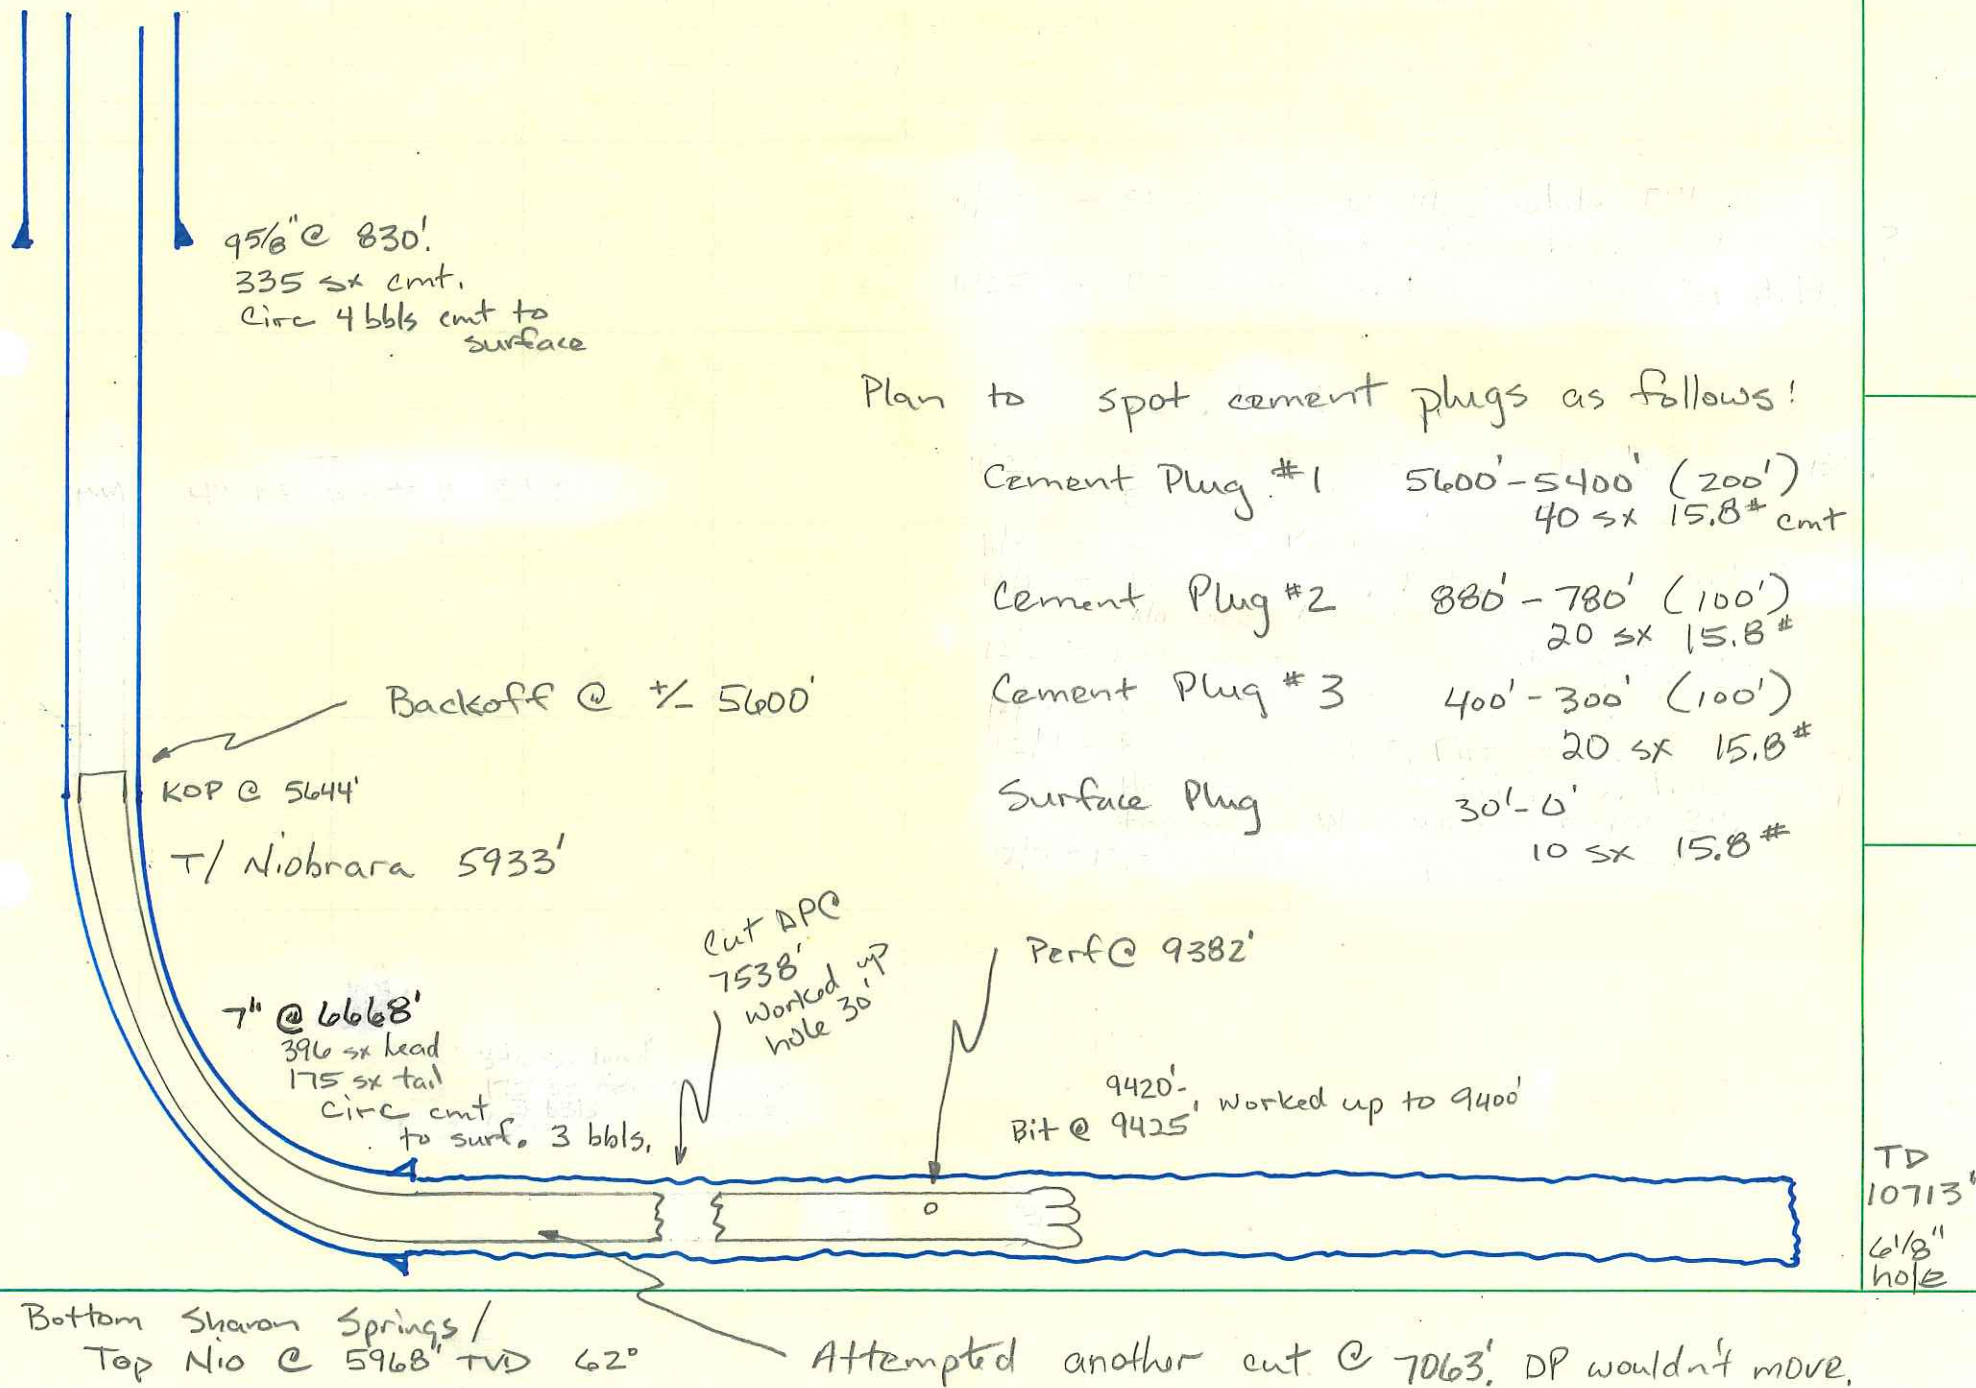 9 5/8" @ 830'.
335 sx cmt.
Circ 4 bbls cmt to
surface
Plan to spot cement plugs as follows!
Cement Plug #1 5600'-5400' (200')
40 sx 15.8# cmt
Cement Plug #2 880'-780' (100')
20 sx 15.8#
Cement Plug #3 400'-300' (100')
20 sx 15.8#
Surface Plug 30'-0'
10 sx 15.8#
Backoff @ +/- 5600'
KOP @ 5644'
T/ Niobrara 5933'
7" @ 6668'
396 sx lead
175 sx tail
Circ cmt
to surf. 3 bbls.
Cut DP @
7538'
Worked up
hole 30'
Perf @ 9382'
9420'-
Bit @ 9425', worked up to 9400'
TD
10713'
6 1/8"
hole
Bottom Sharon Springs/
Top Nio @ 5968" TVD 62°
Attempted another cut @ 7063'. DP wouldn't move.